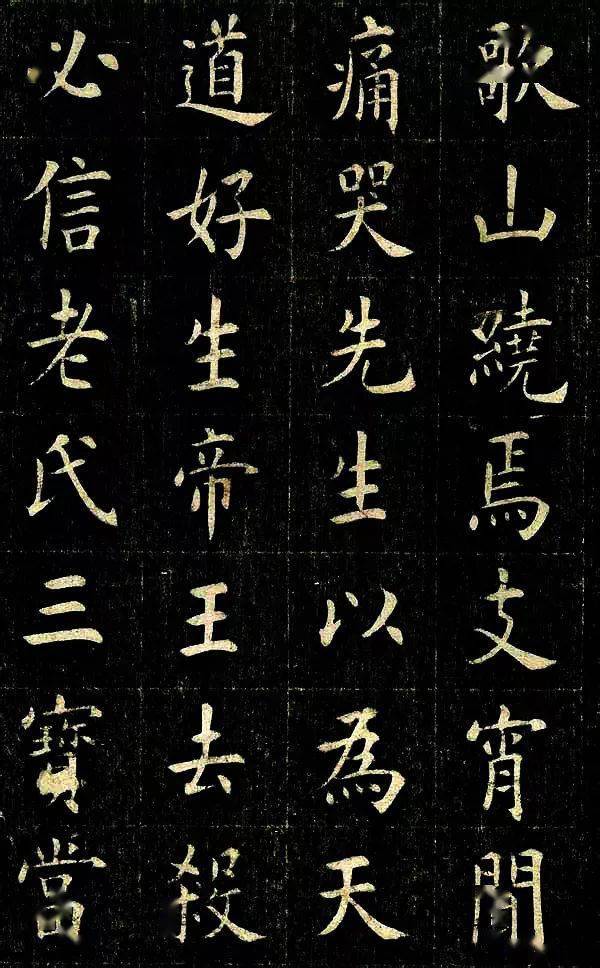 歌山繞焉支宵聞
痛哭先生以為天
道好生帝王去殺
必信老氏三寶當